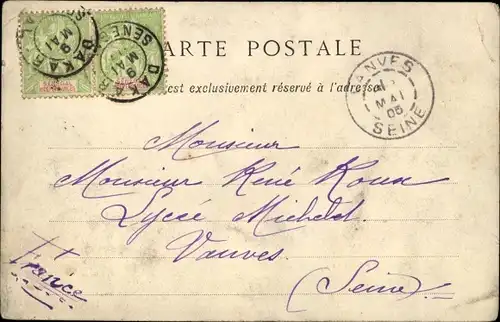 DAKAR
9
MAI
DAKAR
SENEG
9
MAI
CARTE POSTALE
est exclusivement réservé à l'adresse
VANVES
MAI
05
SEINE
Monsieur
Monsieur René Roux
Lycée Michelet
Vanves
(Seine)
France